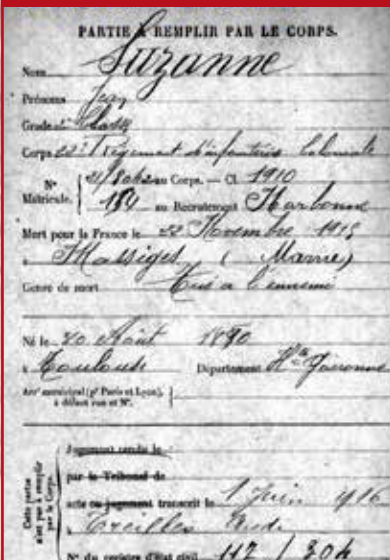 PARTIE A REMPLIR PAR LE CORPS.
Nom Suzanne
Prénoms Jean
Grade 2e Classe
Corps 22e Régiment d'infanterie Coloniale
N° Matricule. au Corps. — Cl. 1910
184 au Recrutement Narbonne
Mort pour la France le 22 Novembre 1915
à Massiges (Marne)
Genre de mort Tué à l'ennemi
Né le 20 Août 1890
à Toulouse Département Hte Garonne
Arrt municipal (pr Paris et Lyon), à défaut rue et N°.
Cette partie n'est pas à remplir par le Corps.
Jugement rendu le
par le Tribunal de
acte ou jugement transcrit le 1 Juin 1916
à Treilles Aude
N° du registre d'état civil 117 / 304